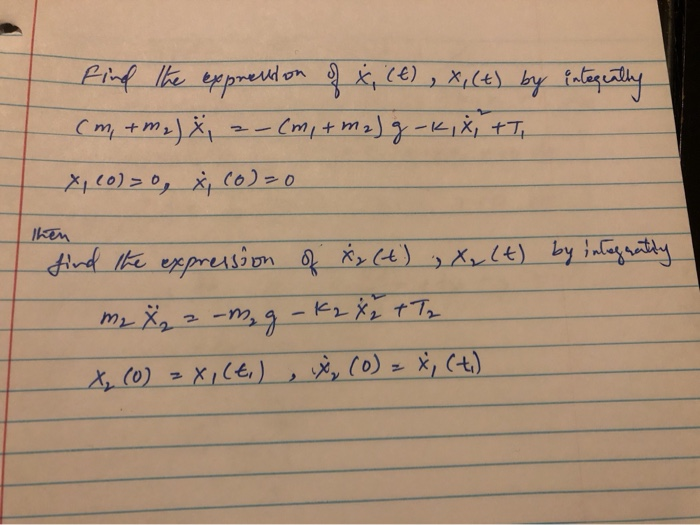 Find the expression of ẋ₁(t), x₁(t) by integrating
(m₁ + m₂) ẍ₁ = - (m₁ + m₂) g - K₁ẋ₁² + T₁
x₁(0) = 0, ẋ₁(0) = 0
then
find the expression of ẋ₂(t), x₂(t) by integrating
m₂ ẍ₂ = -m₂g - K₂ ẋ₂² + T₂
x₂(0) = x₁(t₁), ẋ₂(0) = ẋ₁(t₁)